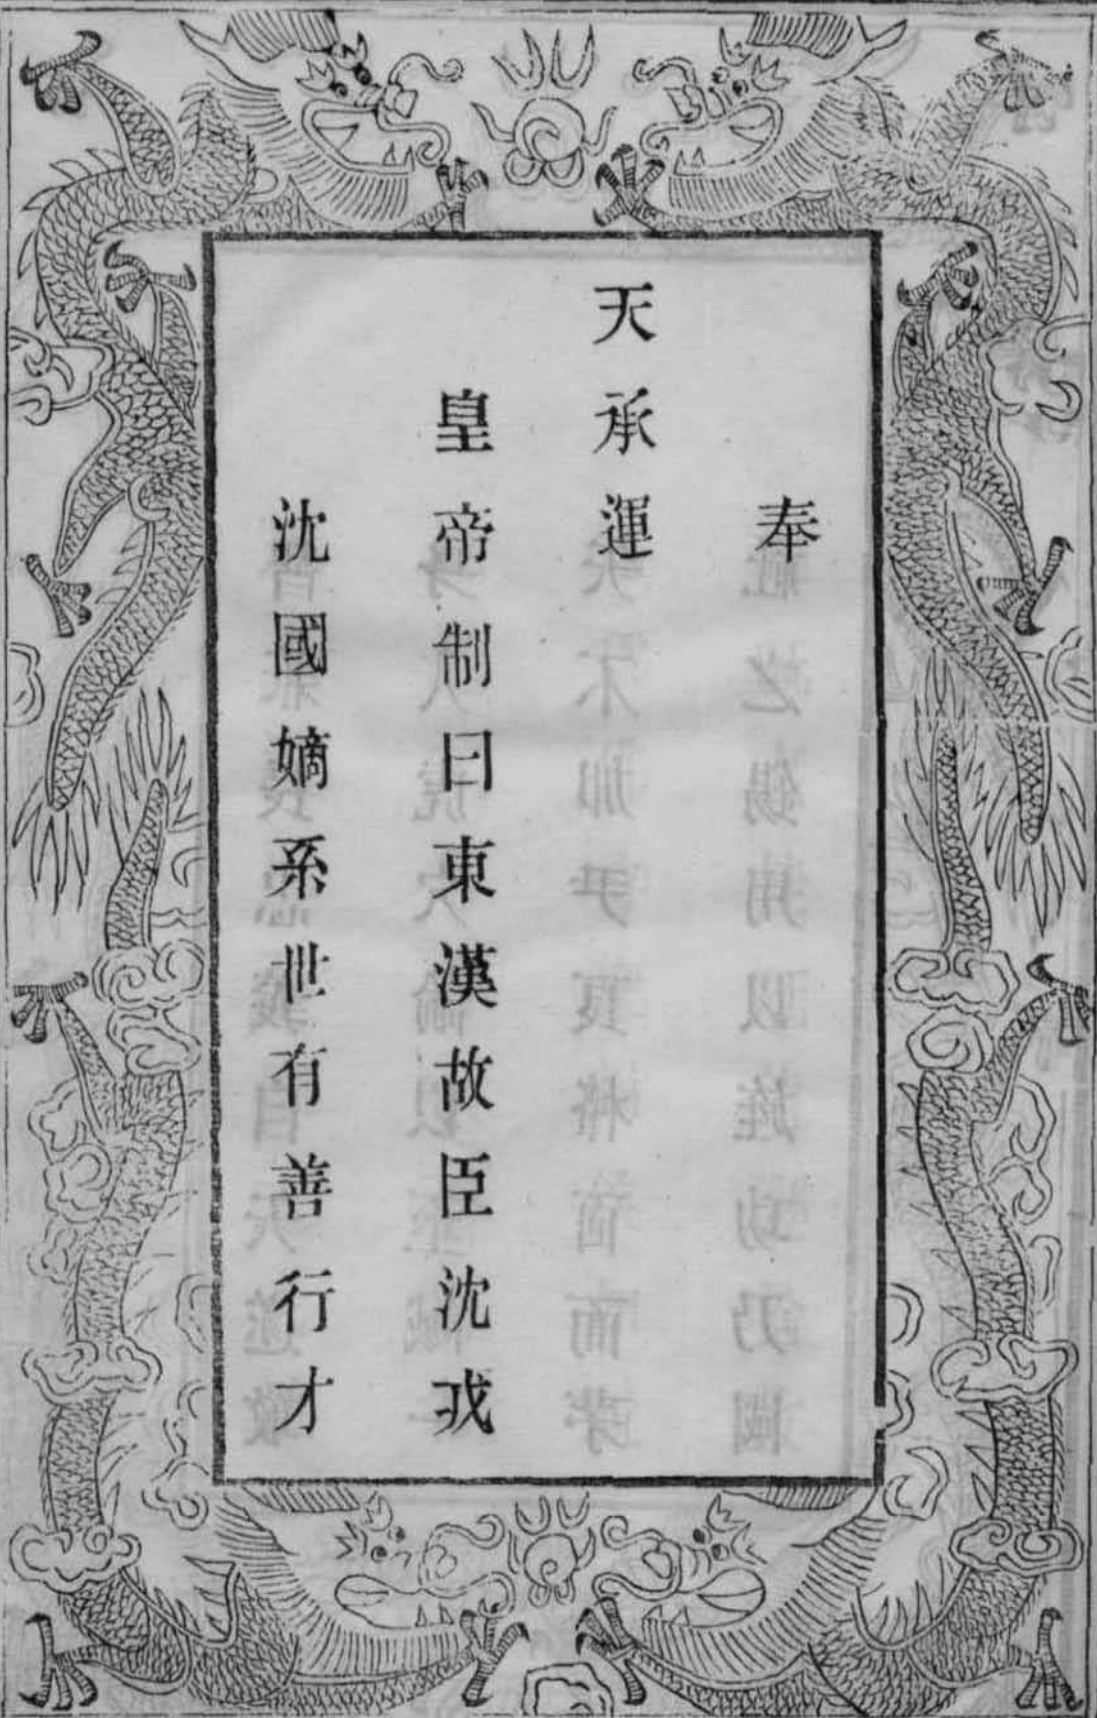 奉
天承運
皇帝制曰東漢故臣沈戎
沈國嫡系世有善行才